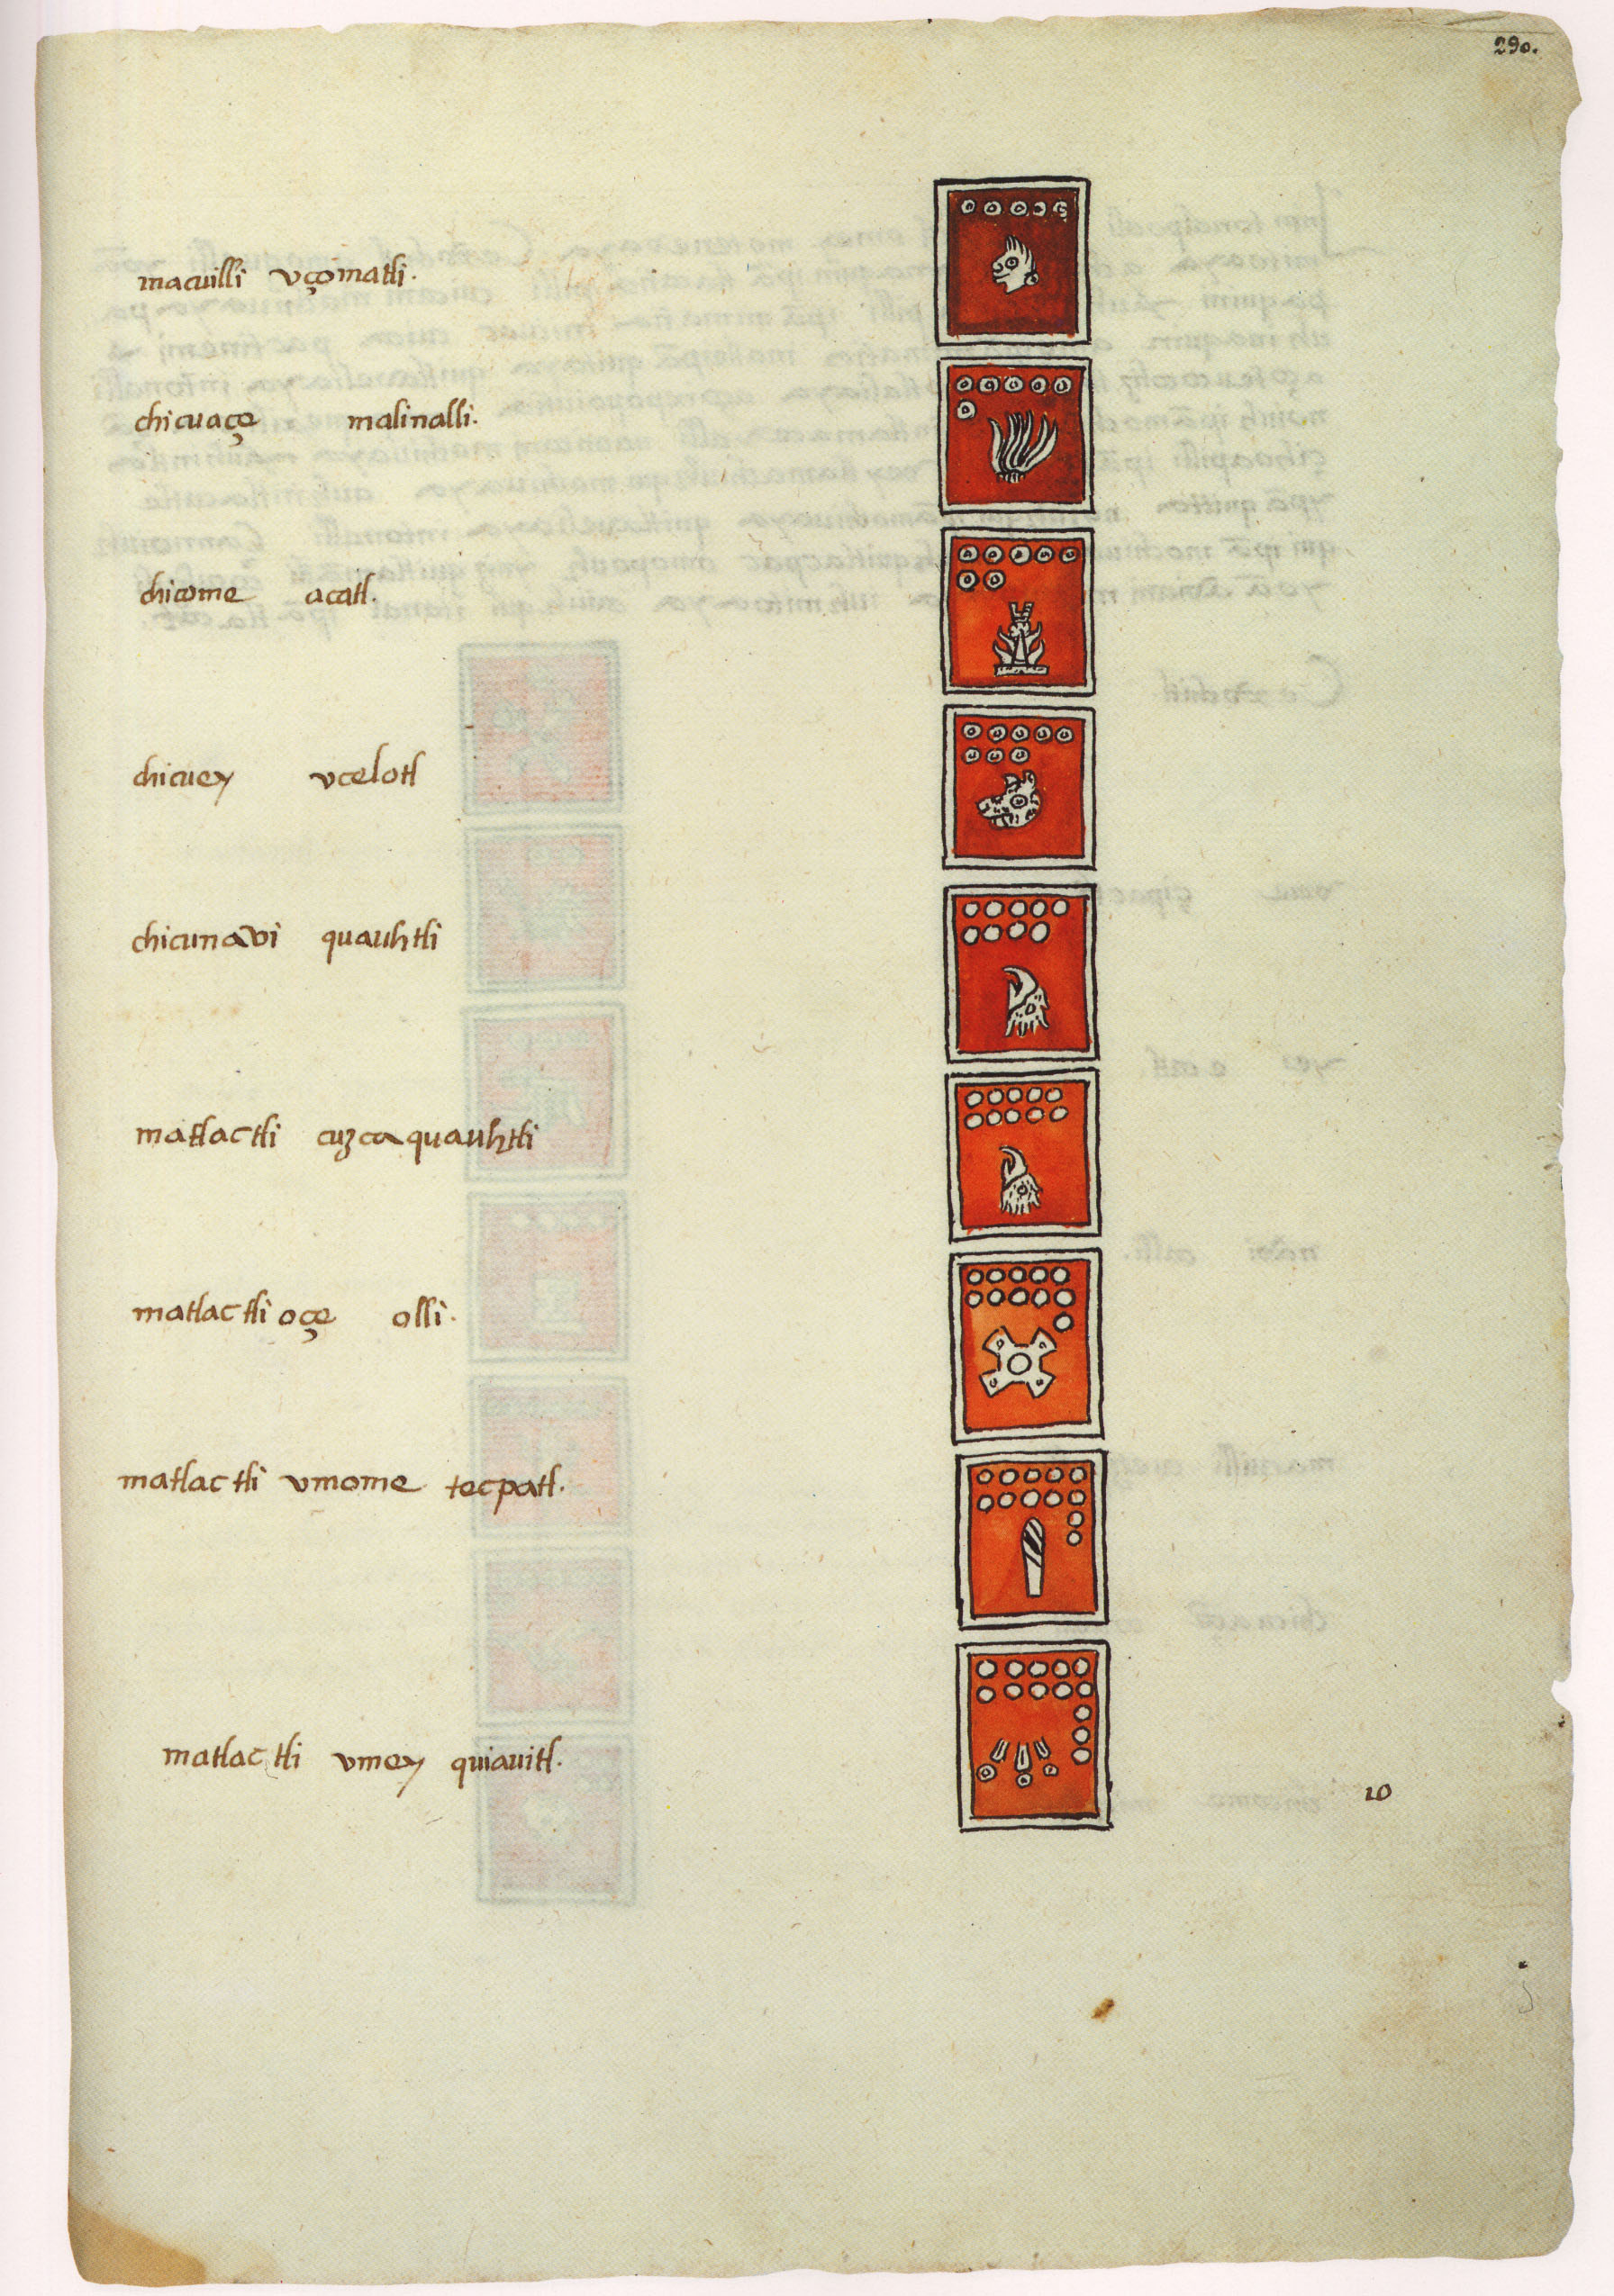 290.
macuilli vçomatli.
chicuaçe malinalli.
chicome acatl.
chicuey vcelotl
chicunavi quauhtli
matlactli cuzcaquauhtli
matlactli oçe olli.
matlactli vmome tecpatl.
matlactli vmey quiauitl.
10